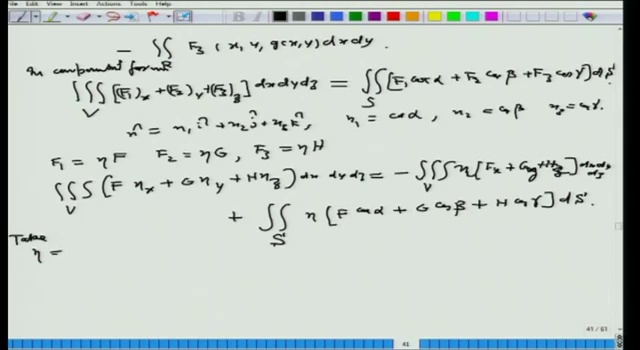 File Edit View Insert Actions Tools Help
- ∬_R F₃ (x, y, g(x,y)) dx dy.
In component form
∭_V [(F₁)_x + (F₂)_y + (F₃)_z] dx dy dz = ∬_S [F₁ cos α + F₂ cos β + F₃ cos γ] dS
n̂ = n₁ î + n₂ ĵ + n₃ k̂, n₁ = cos α, n₂ = cos β n₃ = cos γ.
F₁ = ηF F₂ = ηG, F₃ = ηH
∭_V (F η_x + G η_y + H η_z) dx dy dz = - ∭_V η [F_x + G_y + H_z] dx dy dz
+ ∬_S η [F cos α + G cos β + H cos γ] dS.
Take
η =
41 / 61
41